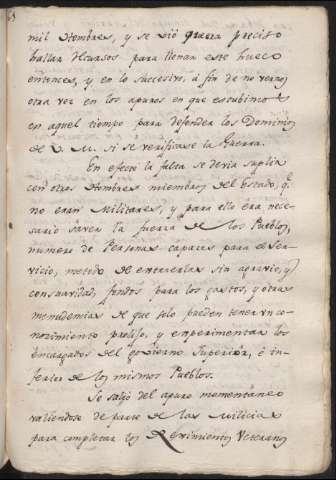 mil Hombres, y se vió que era preciso
hallar Recursos para llenar este hueco
entonces, y en lo succesivo, á fin de no vernos
otra vez en los apuros en que estubimos
en aquel tiempo para defender los Dominios
de V. M. si se verificase la Guerra.
En efecto la falta se devia suplir
con otros Hombres miembros del Estado, q.e
no eran Militares, y para ello era nece-
sario saver la fuerza de los Pueblos,
numero de Personas capaces para el Ser-
vicio, metodo de extraerlas sin agravio, y
con suavidad, fondos para los gastos, y otras
menudencias de que solo pueden tener un co-
nocimiento prolijo, y experimentar los
encargados del govierno Superior, é in-
ferior de los mismos Pueblos.
Se salió del apuro momentaneo
valiendose de parte de las Milicias
para completar los Regimientos Veteranos